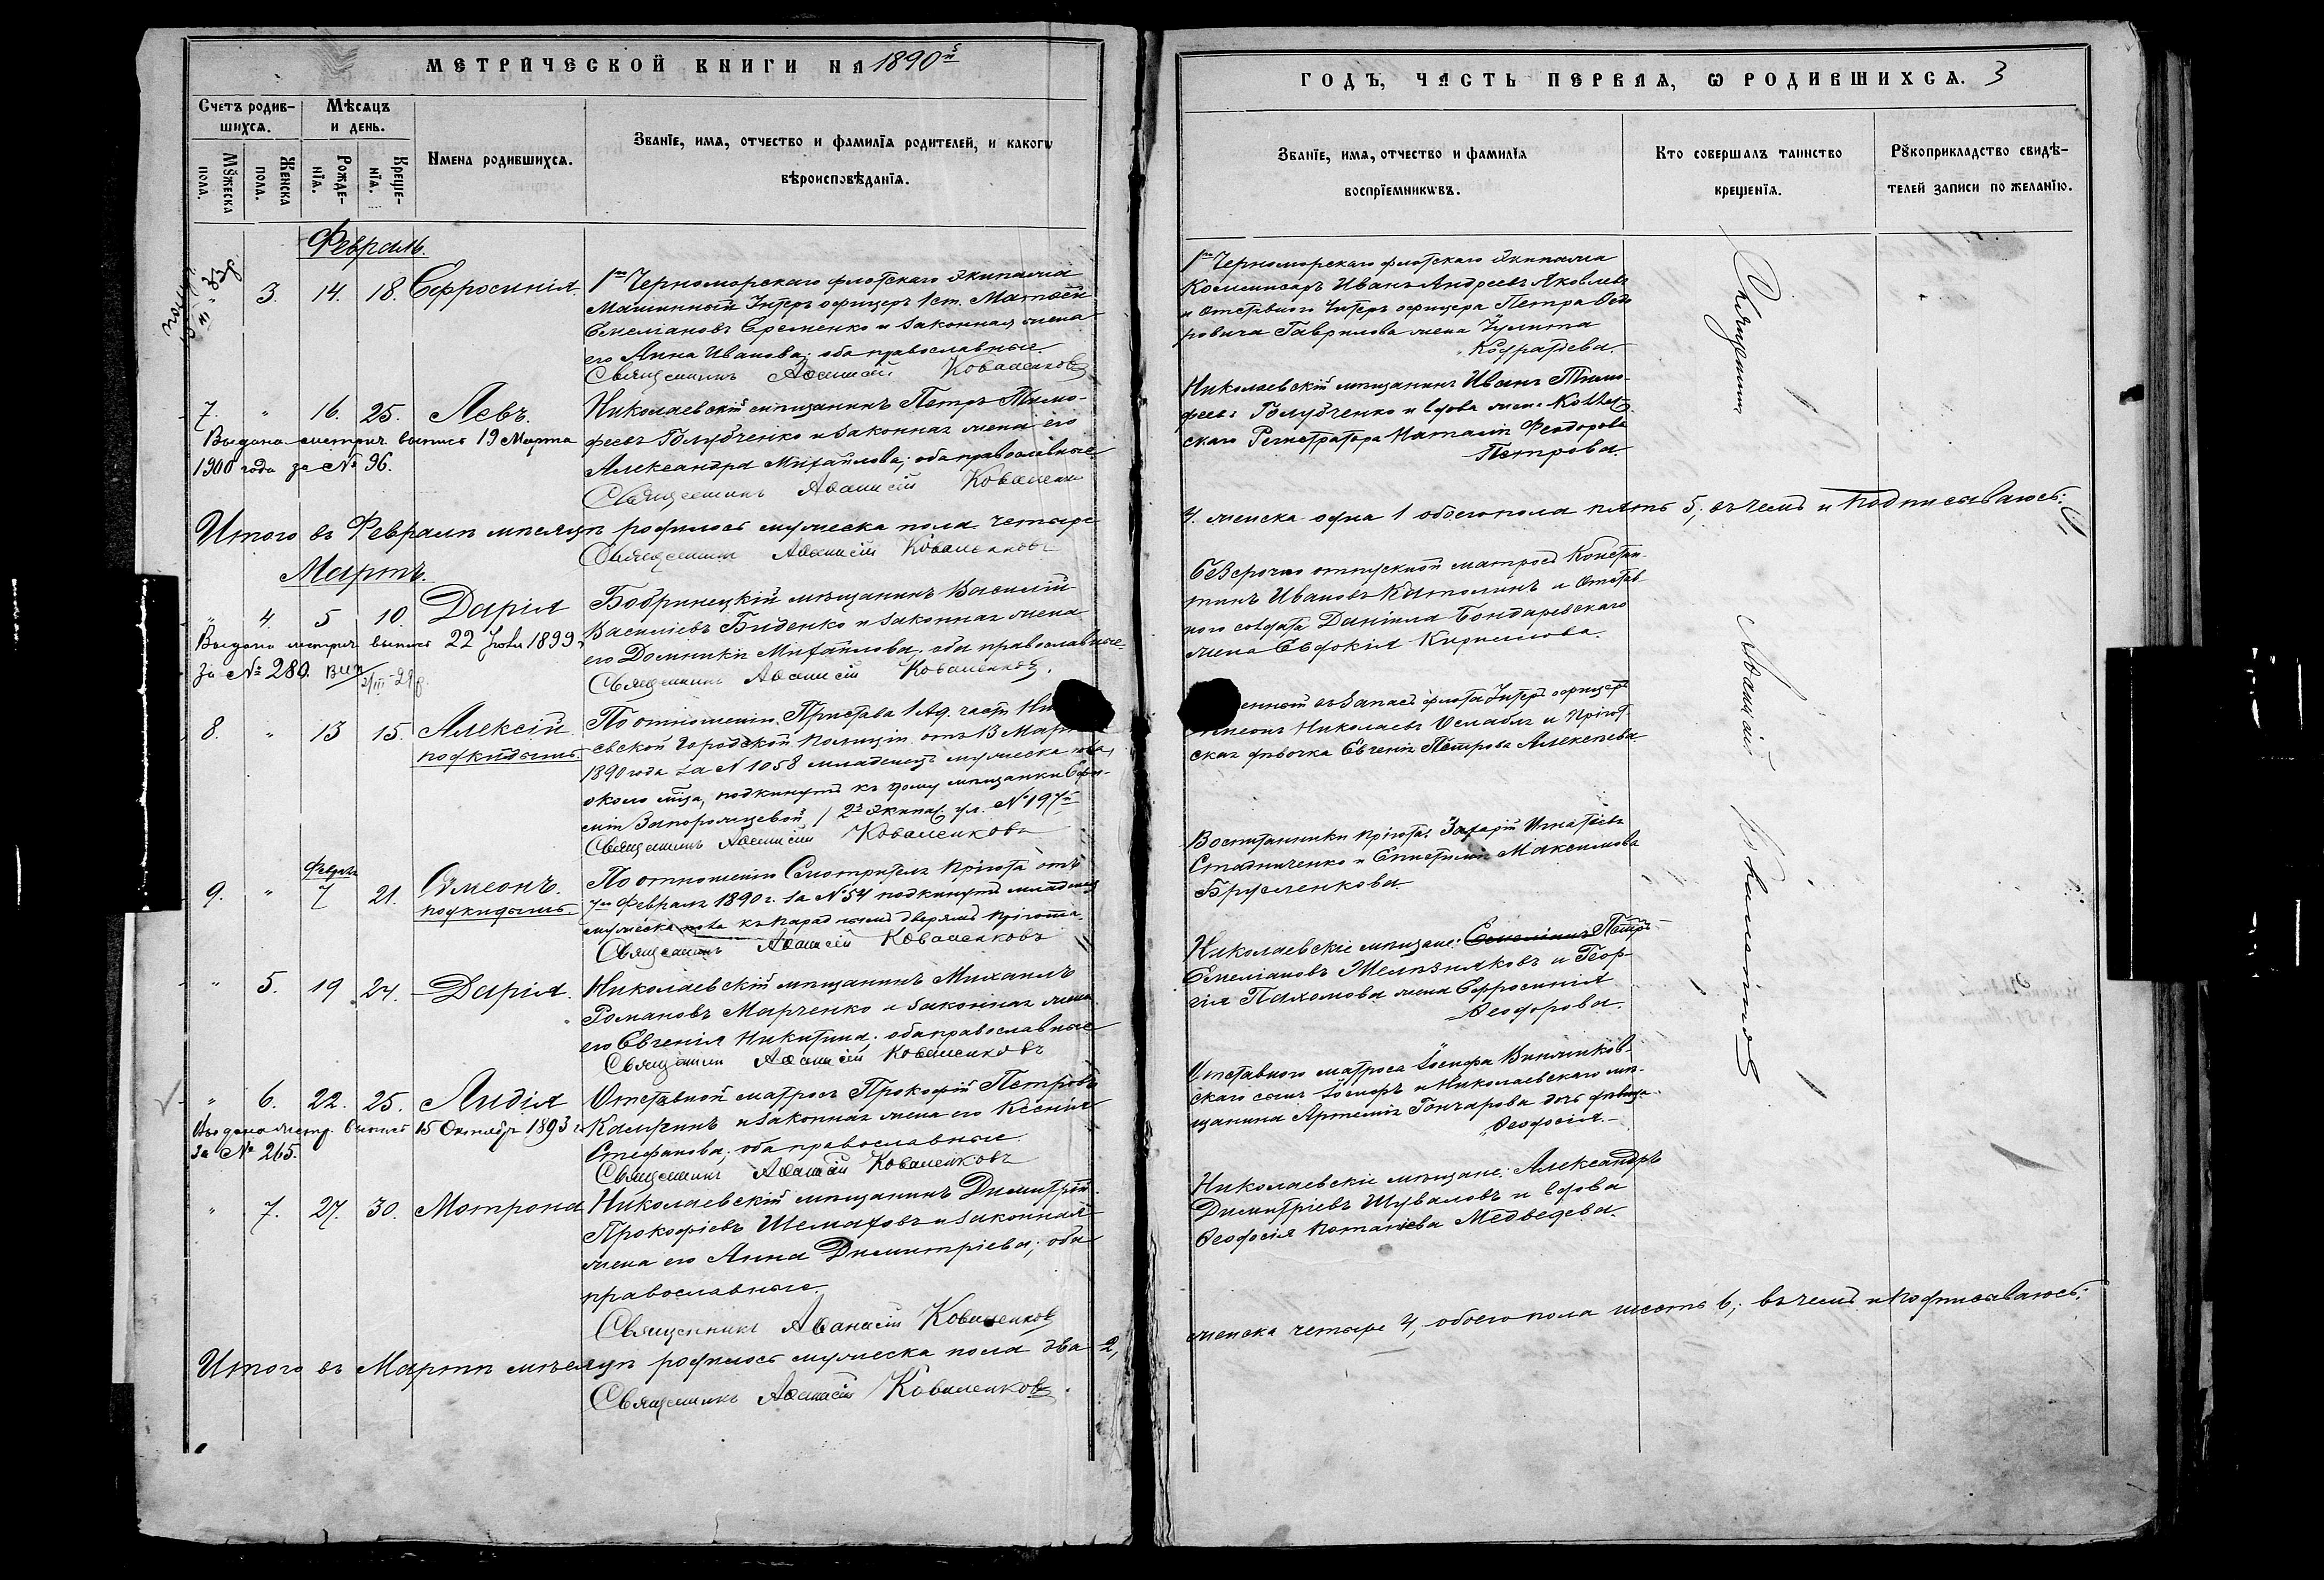 МЕТРИЧЕСКОЙ КНИГИ НА 1890й
Счетъ родившихся.
Мѣсяцъ и день.
Мужеска пола.
Женска пола.
Рожденія.
Крещенія.
Имена родившихся.
Званіе, имя, отчество и фамилія родителей, и какого
вѣроисповѣданія.
Февраль.
3. 14. 18. Ефросинія.
1го Черноморскаго флотскаго Экипажа
Машинный Унтеръ офицеръ 1 ст. Матѳей
Емеліановъ Еременко и законная жена
его Анна Иванова; оба православные.
Священникъ Аѳанасій Коваленковъ
7. " 16. 25. Левъ.
Выдана метрич. выпись 19 Марта
1900 года за № 96.
Николаевскій мѣщанинъ Петръ Тимо-
феевъ Голубченко и законная жена его
Александра Михаилова; оба православные
Священникъ Аѳанасій Коваленковъ
Итого въ Февралѣ мѣсяцѣ родилось мужеска пола четыре
Священникъ Аѳанасій Коваленковъ
Мартъ.
" 4. 5 10. Дарія
Выдана метрич. выпись 22 1899
за № 280.
Бобринецкій мѣщанинъ Василій
Василіевъ Биденко и законная жена
его Домникія Михаилова; оба православные.
Священникъ Аѳанасій Коваленковъ.
8. " 13 15. Алексій
подкидышъ.
По отношенію Пристава 1 Ад. части
евской Городской Полиціи отъ 13 Мар
1890 года за № 1058 младенецъ мужеска пола,
около м-ца, подкинутъ къ дому мѣщанки Ефи-
міи Запорожцевой / 2я Экипаж. ул. № 197й
Священникъ Аѳанасій Коваленковъ
Февраль
9. " 7 21. Сѵмеонъ.
подкидышъ.
По отношенію Смотрителя Пріюта отъ
7го Февраля 1890 г. за № 54 подкинутъ младенецъ
мужеска пола къ параднымъ дверямъ пріюта.
Священникъ Аѳанасій Коваленковъ
" 5. 19 24. Дарія.
Николаевскій мѣщанинъ Михаилъ
Романовъ Марченко и законная жена
его Евгенія Никитина; оба православные
Священникъ Аѳанасій Коваленковъ
" 6. 22. 25. Лидія
Выдана метр. выпись 15 Октября 1893 г.
за № 265.
Отставной матросъ Прокофій Петровъ
и законная жена его Ксенія
Стефанова; оба православные
Священникъ Аѳанасій Коваленковъ
" 7. 27. 30. Матрона
Николаевскій мѣщанинъ Димитрій
Прокофіевъ Шелмаховъ и законная
жена его Анна Димитріева; оба
православные.
Священникъ Аѳанасій Коваленковъ
Итого въ Мартѣ мѣсяцѣ родилось мужеска пола два 2,
Священникъ Аѳанасій Коваленковъ.
ГОДЪ, ЧАСТЬ ПЕРВАЯ, Ѡ РОДИВШИХСЯ. 3
Званіе, имя, отчество и фамилія
воспріемниковъ.
Кто совершалъ таинство
крещенія.
Рукоприкладство свидѣ-
телей записи по желанію.
1го Черноморскаго флотскаго Экипажа
Коммисаръ Иванъ Андреевъ Яковлевъ
и отставного Унтеръ офицера Петра Ѳедо
ровича Гаврилова жена Іулита
Кодратіева.
Николаевскій мѣщанинъ Иванъ Тимо-
феевъ Голубченко и вдова жена Коллеж-
скаго Регистратора Наталія Феодорова
Петрова.
4. женска одна 1 обоего пола пять 5; въ чемъ и подписываюсь:
Безсрочно отпускной матросъ Констан-
тинъ Ивановъ Католинъ и отстав-
ного солдата Даніила Бондаревскаго
жена Евдокія Кирилова.
енной въ запасъ флота Унтеръ офицеръ
Николаевъ Ослабля и Пріют-
ская дѣвочка Евгенія Петрова Алексѣева.
Воспитанники Пріюта: Захарій Игнатіевъ
Стадниченко и Епистимія Максимова
Брусленкова
Николаевскіе мѣщане: Емеліанъ Петръ
Емеліановъ Желѣзняковъ и Геор-
гія Пахомова жена Ефросинія
Ѳеодорова.
Отставного матроса Іосифа
скаго сынъ и Николаевскаго мѣ-
щанина Артемія Гончарова дочь дѣвица
Ѳеодосія.
Николаевскіе мѣщане: Александръ
Димитріевъ Шуваловъ и вдова
Ѳеодосія Потапіева Медведева.
женска четыре 4, обоего пола шесть 6; въ чемъ и подписываюсь:
Священникъ Аѳанасій Коваленковъ